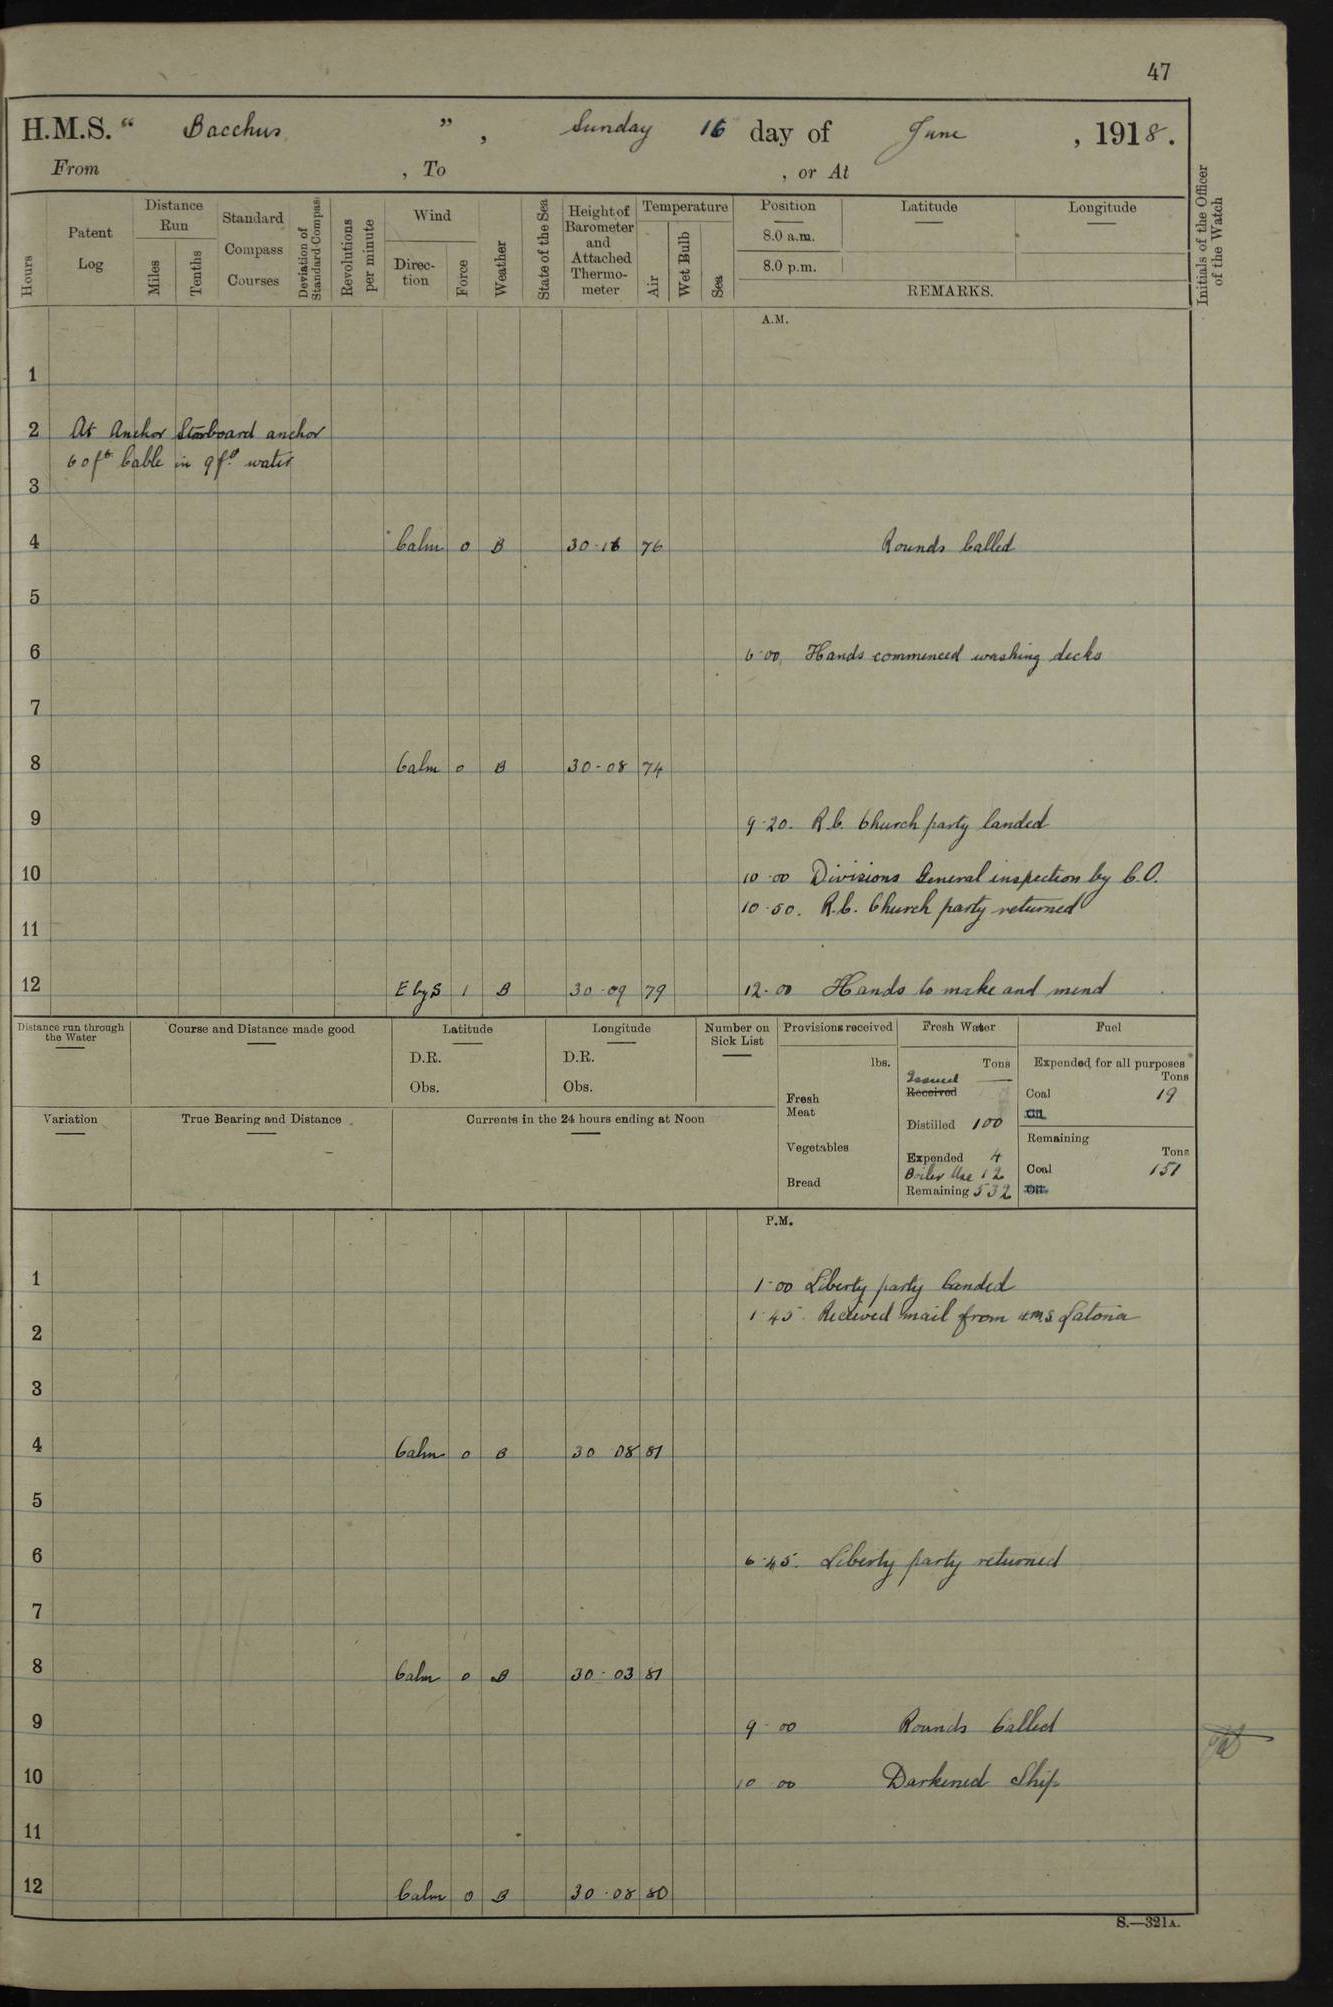 47
H.M.S. “ Bacchus ” , Sunday 16 day of June , 1918.
From , To , or At
Hours
Patent Log
Distance Run
Miles
Tenths
Standard Compass Courses
Deviation of Standard Compass
Revolutions per minute
Wind
Direc-tion
Force
Weather
State of the Sea
Height of Barometer and Attached Thermo-meter
Temperature
Air
Wet Bulb
Sea
Position
8.0 a.m.
8.0 p.m.
Latitude
Longitude
REMARKS.
Initials of the Officer of the Watch
A.M.
1
2 At Anchor Starboard anchor
60 fs Cable in 9 fs water
3
4 Calm 0 B 30·16 76 Rounds Called
5
6 6·00 Hands commenced washing decks
7
8 Calm 0 B 30-08 74
9 9·20. R.C. Church party landed
10 10·00 Divisions General inspection by C.O.
10·50. R.C. Church party returned
11
12 E by S 1 B 30-09 79 12·00 Hands to make and mend
Distance run through the Water
Course and Distance made good
Latitude
D.R.
Obs.
Longitude
D.R.
Obs.
Number on Sick List
Provisions received
lbs.
Fresh Meat
Vegetables
Bread
Fresh Water
Tons
Issued —
Received
Distilled 100
Expended 4
Boiler Use 12
Remaining 532
Fuel
Expended for all purposes
Tons
Coal 19
Oil
Remaining
Tons
Coal 151
Oil
Variation
True Bearing and Distance
Currents in the 24 hours ending at Noon
P.M.
1 1·00 Liberty party landed
1·45. Received mail from HMS Latona
2
3
4 Calm 0 B 30 08 81
5
6 6·45. Liberty party returned
7
8 Calm 0 B 30·03 81
9 9·00 Rounds Called
10 10 00 Darkened Ship
11
12 Calm 0 B 30·08 80
S.—321A.